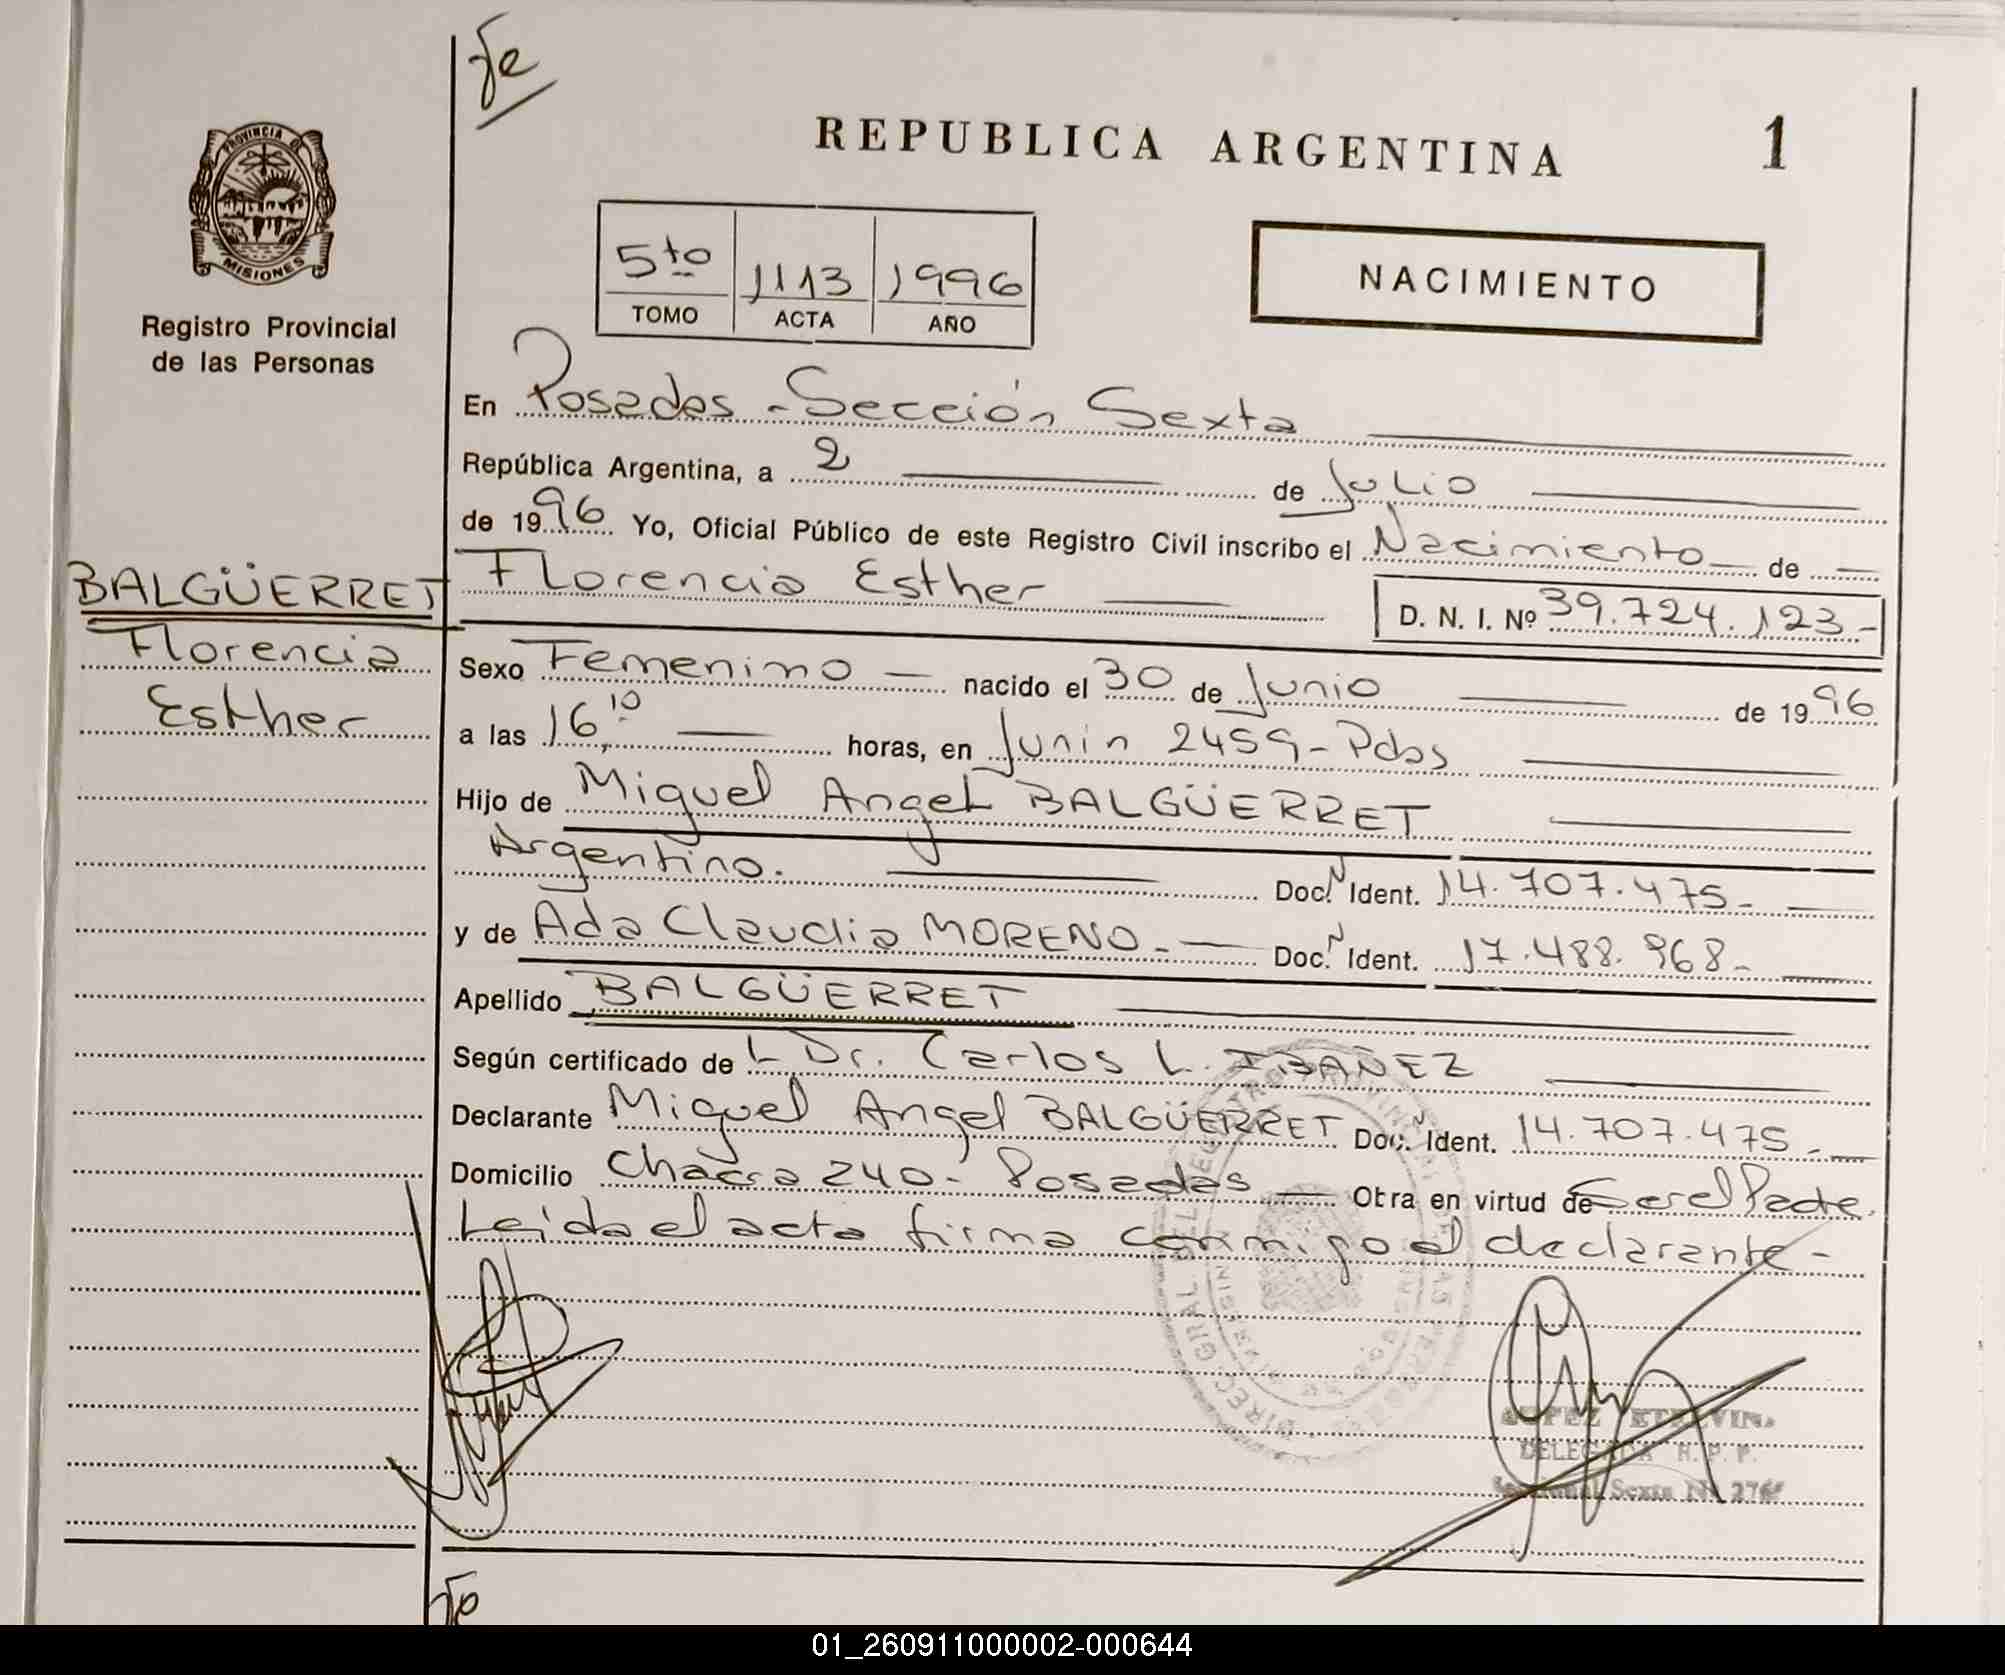 REPUBLICA ARGENTINA 1
PROVINCIA DE
MISIONES
Registro Provincial
de las Personas
5to 1113 1996
TOMO ACTA AÑO
NACIMIENTO
En Posadas - Sección Sexta
República Argentina, a 2 de Julio
de 1996 Yo, Oficial Público de este Registro Civil inscribo el Nacimiento de
BALGÜERRET
Florencia
Esther
Florencia Esther D. N. I. Nº 39.724.123-
Sexo Femenino nacido el 30 de Junio de 1996
a las 16,10 horas, en Junin 2459 - Pdas
Hijo de Miguel Angel BALGÜERRET
Argentino. Doc. Ident. 14.707.475-
y de Ada Claudia MORENO - Doc. Ident. 17.488.968-
Apellido BALGÜERRET
Según certificado de L Dr. Carlos L. IBAÑEZ
Declarante Miguel Angel BALGÜERRET Doc. Ident. 14.707.475-
Domicilio Chacra 240 - Posadas Obra en virtud de Ser el Padre.
Leída el acta firma conmigo el declarante -
DELEGADA R. P. P.
Sexta Nº 276
01_260911000002-000644